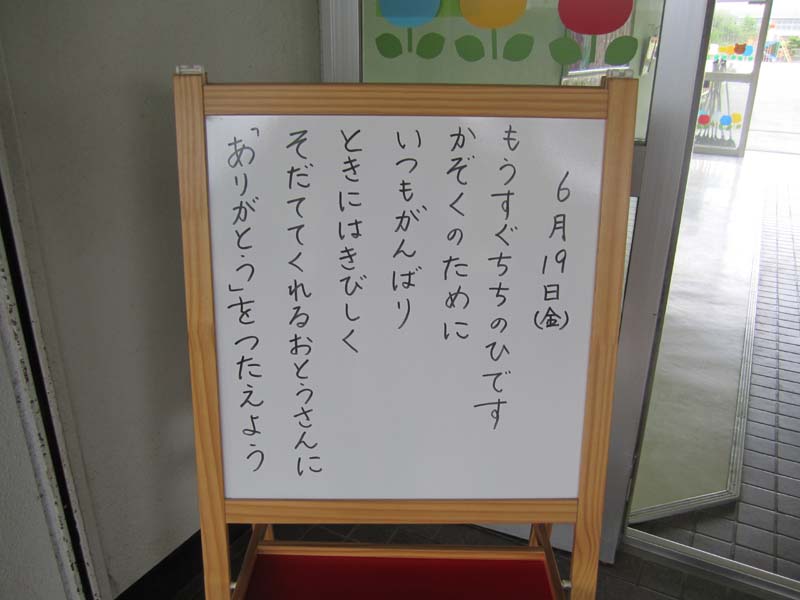 6月19日(金)
もうすぐちちのひです
かぞくのために
いつもがんばり
ときにはきびしく
そだててくれるおとうさんに
「ありがとう」をつたえよう